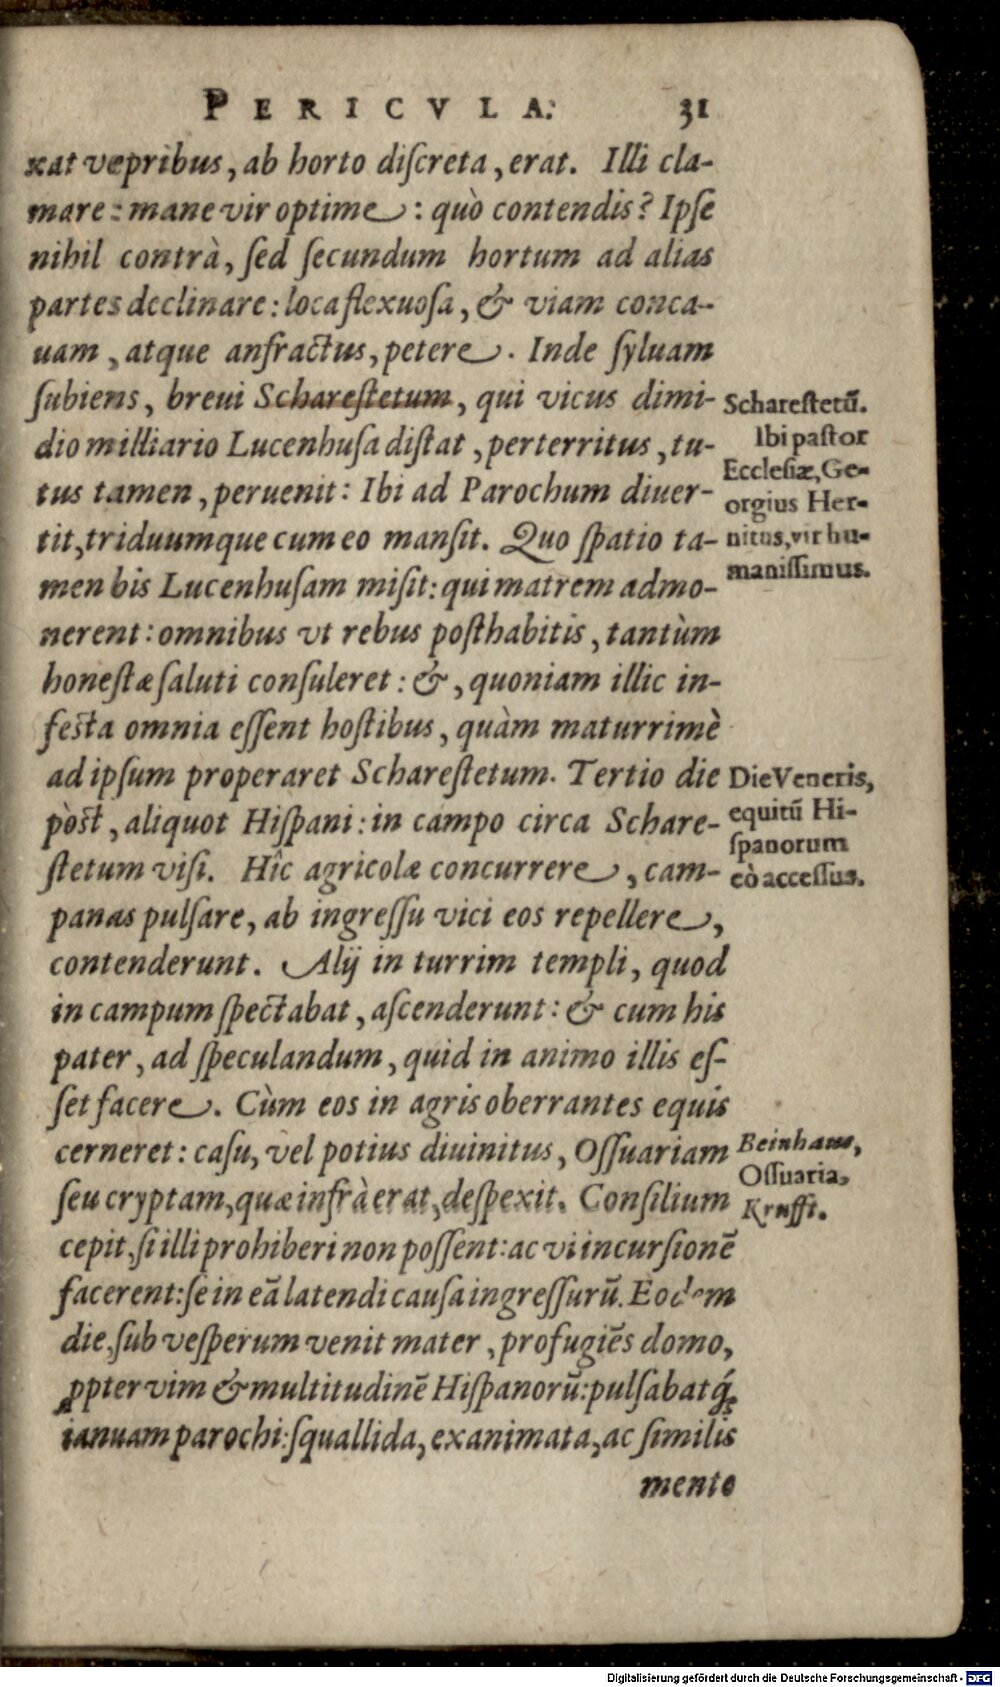 PERICVLA. 31
xat vepribus, ab horto discreta, erat. Illi cla-
mare: mane vir optime: quò contendis? Ipse
nihil contrà, sed secundum hortum ad alias
partes declinare: loca flexuosa, & viam conca-
uam, atque anfractus, petere. Inde syluam
subiens, breui Scharestetum, qui vicus dimi-
dio milliario Lucenhusa distat, perterritus, tu-
tus tamen, peruenit: Ibi ad Parochum diuer-
tit, triduumque cum eo mansit. Quo spatio ta-
men bis Lucenhusam misit: qui matrem admo-
nerent: omnibus vt rebus posthabitis, tantùm
honestæ saluti consuleret: &, quoniam illic in-
festa omnia essent hostibus, quàm maturrimè
ad ipsum properaret Scharestetum. Tertio die
pòst, aliquot Hispani: in campo circa Schare-
stetum visi. Hîc agricolæ concurrere, cam-
panas pulsare, ab ingressu vici eos repellere,
contenderunt. Alij in turrim templi, quod
in campum spectabat, ascenderunt: & cum his
pater, ad speculandum, quid in animo illis es-
set facere. Cùm eos in agris oberrantes equis
cerneret: casu, vel potius diuinitus, Ossuariam
seu cryptam, quæ infrà erat, despexit. Consilium
cepit, si illi prohiberi non possent: ac vi incursionē
facerent: se in eā latendi causa ingressurū. Eodem
die, sub vesperum venit mater, profugiēs domo,
ꝓpter vim & multitudinē Hispanorū: pulsabatq́;
ianuam parochi: squallida, exanimata, ac similis
mente
Scharestetū.
Ibi pastor
Ecclesiæ, Ge-
orgius Her-
nitus, vir hu-
manissimus.
Die Veneris,
equitū Hi-
spanorum
eò accessus.
Beinhaus,
Ossuaria,
Krufft.
Digitalisierung gefördert durch die Deutsche Forschungsgemeinschaft - DFG